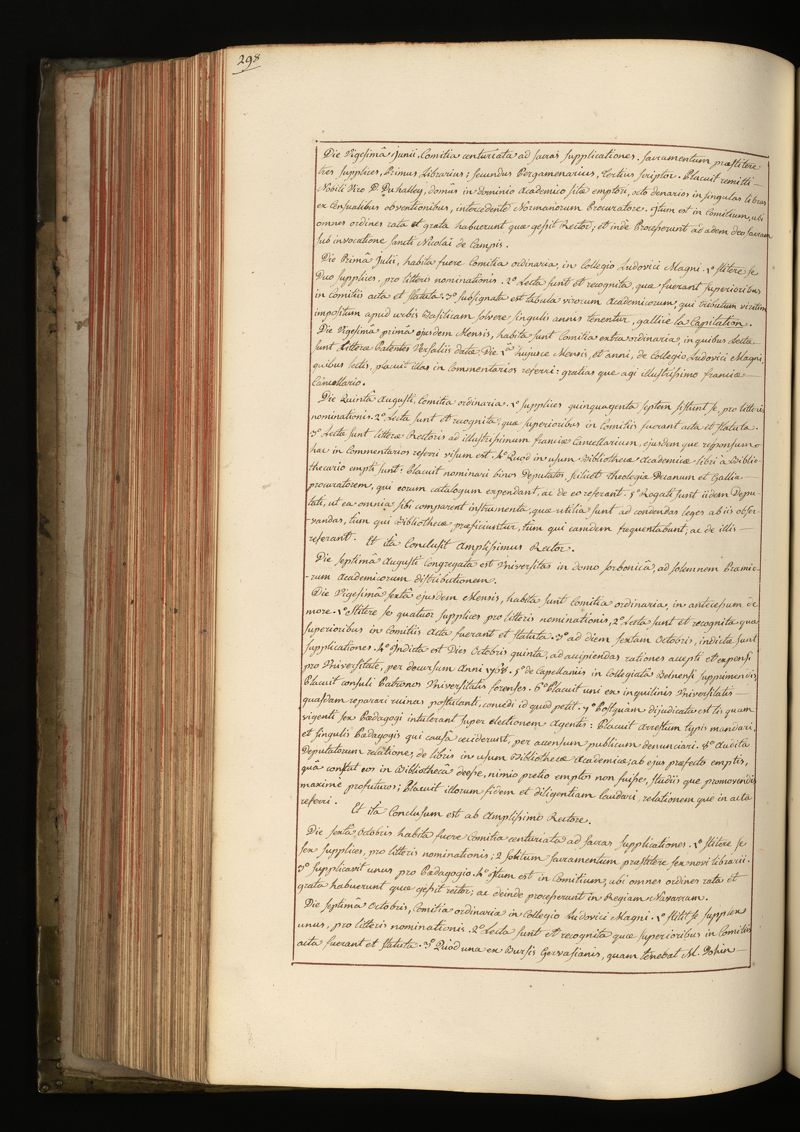 298
Die Vigesimâ Junii, Comitia centuriata ad sacras supplicationes. Sacramentum præstitere
tres supplices, Primus Librarius; secundus Pergamenarius, tertius scriptor. Placuit remitti
Nobili Viro D. Duhalley, domûs in dominio Academico sitæ emptori, octo denarios in singulas libras
ex censualibus obventionibus, intercedente Normaniorum Procuratore. Itum est in Comitium, ubi
omnes ordines rata et grata habuerunt quæ gessit Rector; et inde Processerunt ad ædem deo sacram
sub invocatione sancti Nicolai de Campis.
Die Primâ Julii, habita fuere Comitia ordinaria, in Collegio Ludovici Magni. 1º stitere se
Duo supplices, pro litteris nominationis. 2º Lecta sunt et recognita, quæ fuerant superioribus
in Comitiis acta et statuta. 3º subsignata est tabula virorum Academicorum, qui tributum viritim
impositum apud urbis Basilicam solvere singulis annis tenentur, gallice la Capitation.
Die Vigesimâ primâ ejusdem Mensis, habita sunt Comitia extraordinaria, in quibus Lectæ
sunt Litteræ Patentes Versaliis datæ Die 1ª hujusce Mensis, et anni, de Collegio Ludovici Magni,
quibus lectis, placuit illas in commentarios referri: gratias que agi illustrissimo franciæ
Cancellario.
Die Quintâ Augusti, Comitia ordinaria. 1º supplices quinquagenta septem sistunt se, pro litteris
nominationis. 2º Lecta sunt et recognita, quæ superioribus in Comitiis fuerant acta et statuta.
3º Lectæ sunt litteræ Rectoris ad illustrissimum franciæ Cancellarium, ejusdem que responsum
hæc in Commentarios referri visum est. 4º Quod in usum Bibliothecæ Academicæ libri a Biblio-
thecario empti sunt: Placuit nominari binos Deputatos, scilicet Theologiæ Decanum et Galliæ
procuratorem, qui eorum catalogum expendant, ac de eo referant. 5º Rogati sunt iidem Depu-
tati, ut ea omnia sibi comparent instrumenta, quæ utilia sunt ad condendas leges ab iis obser-
vandas, tùm qui Bibliothecæ præficiuntur, tùm qui eamdem frequentabunt; ac de illis
referant. Et ità Conclusit Amplissimus Rector.
Die septimâ Augusti Congregata est Universitas in domo sorbonicâ, ad solemnem Præmio-
-rum Academicorum distributionem.
Die Vigesimâ sextâ ejusdem Mensis, habita sunt Comitia ordinaria, in antecessum de
more. 1º stitere se quatuor supplices pro litteris nominationis, 2º Lecta sunt et recognita quæ
superioribus in Comitiis Acta fuerant et statuta. 3º ad diem sextam Octobris, indictæ sunt
supplicationes. 4º Indicta est Dies Octobris quinta, ad accipiendas rationes accepti et expensi
pro Universitate, per decursum Anni 5º de Capellaniis in collegiata supprimendis
Placuit consuli Patronos Universitatis forenses. 6º Placuit uni ex inquilinis Universitatis
quasdam reparari ruinas postulanti, concedi id quod petit. 7º Postquàm dijudicata est lis quam
viginti sex Pædagogi intulerant super electionem Agentis: Placuit Arrestum typis mandari,
et singulis Pædagogis qui causâ ceciderunt, per accensum publicum denunciari. 8º Audita
Deputatorum relatione, de libris in usum Bibliothecæ Academicæ, ab ejus præfecto emptis,
quâ constat eos in Bibliothecâ deesse, nimio pretio emptos non fuisse, studiis que promovendis
maximè profuturos; Placuit illorum fidem et diligentiam laudari, relationem que in acta
referri. Et ità Conclusum est ab Amplissimo Rectore.
Die sextâ Octobris habita fuere Comitia centuriata ad sacras supplicationes. 1º stitere se
sex supplices, pro litteris nominationis; 2 solitum sacramentum præstitere sex novi librarii.
3º supplicavit unus pro Pædagogio. 4º Itum est in Comitium, ubi omnes ordines rata et
grata habuerunt quæ gessit rector; ac deinde processerunt in Regiam Navarram.
Die septimâ Octobris, Comitia ordinaria in Collegio Ludovici Magni. 1º stitit se supplex
unus, pro litteris nominationis. 2º Lecta sunt et recognita quæ superioribus in Comitiis
acta fuerant et statuta. 3º Quod una ex Bursis Gervasianis, quam tenebat M.